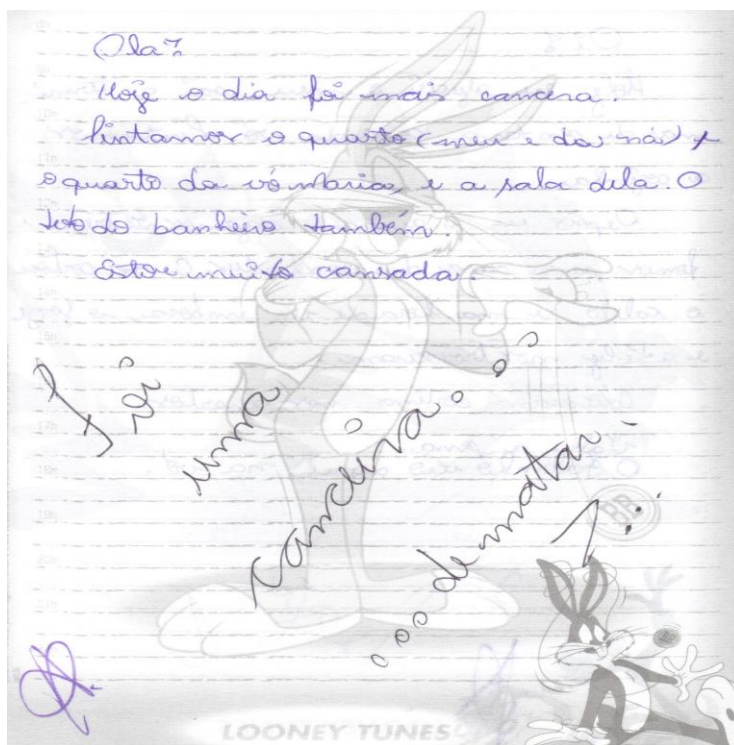 Ola?
Hoje o dia foi mais cancera.
Pintamos o quarto (meu e da ná) +
o quarto da vó Maria, e a sala dela. O
teto do banheiro também.
Estou muito cansada
Foi
uma
canceira...
...de matar.
LOONEY TUNES